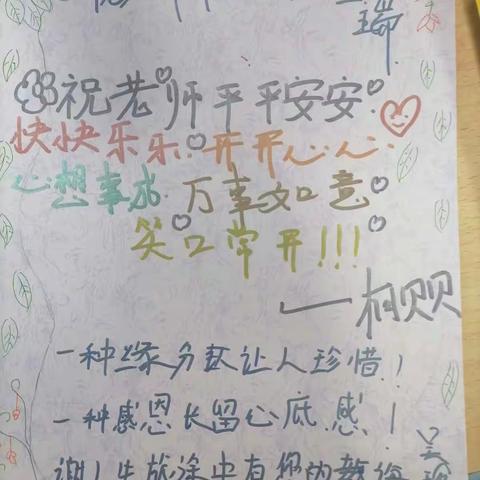 瑞
祝老师平平安安.
快快乐乐.开开心心.
心想事成.万事如意
笑口常开!!!
——柯贝贝
一种缘分要让人珍惜!
一种感恩长留心底.感!
谢人生旅途中有您的教诲